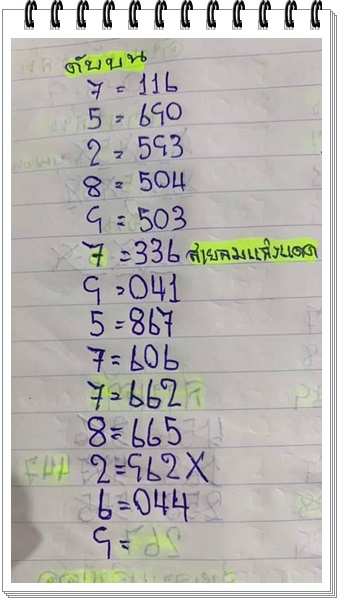 ดับบน
7 = 116
5 = 690
2 = 593
8 = 504
9 = 503
7 = 336 สายลมแสงแดด
9 = 041
5 = 867
7 = 606
7 = 662
8 = 665
2 = 962 X
6 = 044
9 =